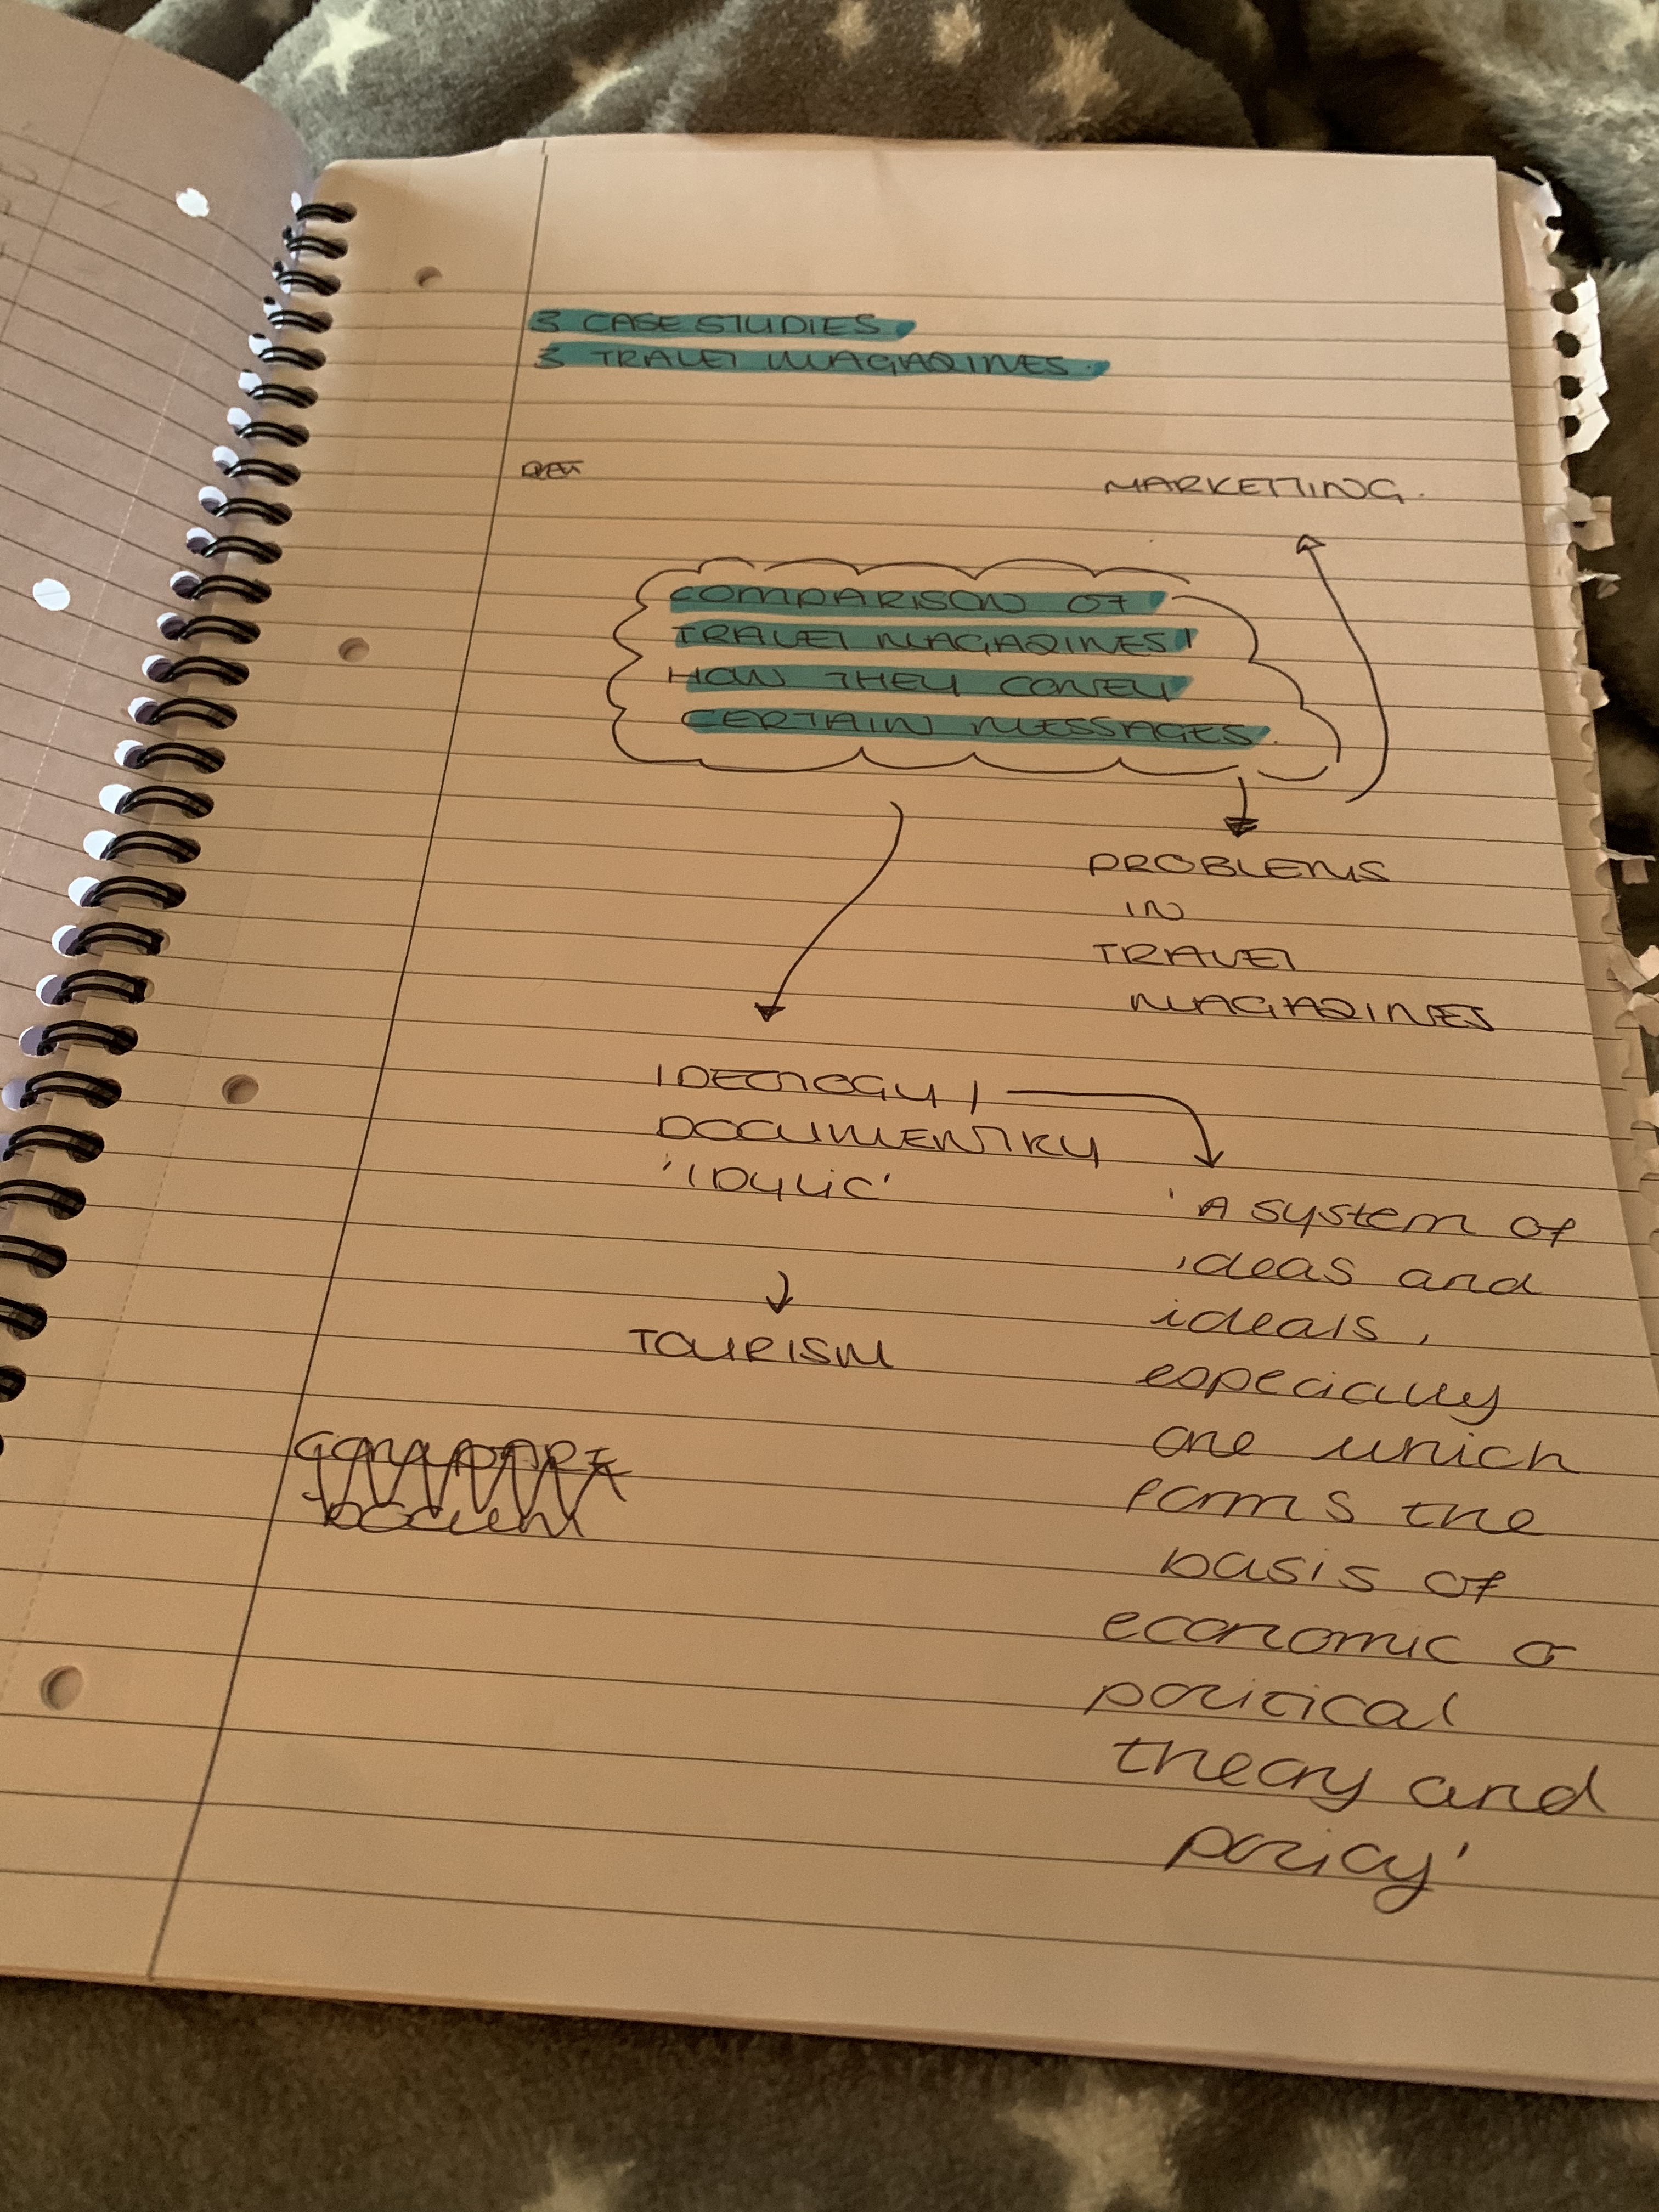 3 CASE STUDIES
3 TRAVEL MAGAZINES.
MARKETTING.
COMPARISON OF
TRAVEL MAGAZINES /
HOW THEY CONVEY
CERTAIN MESSAGES.
PROBLEMS
IN
TRAVEL
MAGAZINES
IDEOLOGY /
DOCUMENTRY
'IDYLIC'
TOURISM
'A system of
ideas and
ideals,
especially
one which
forms the
basis of
economic or
political
theory and
policy'
COMPARE
DOCUM